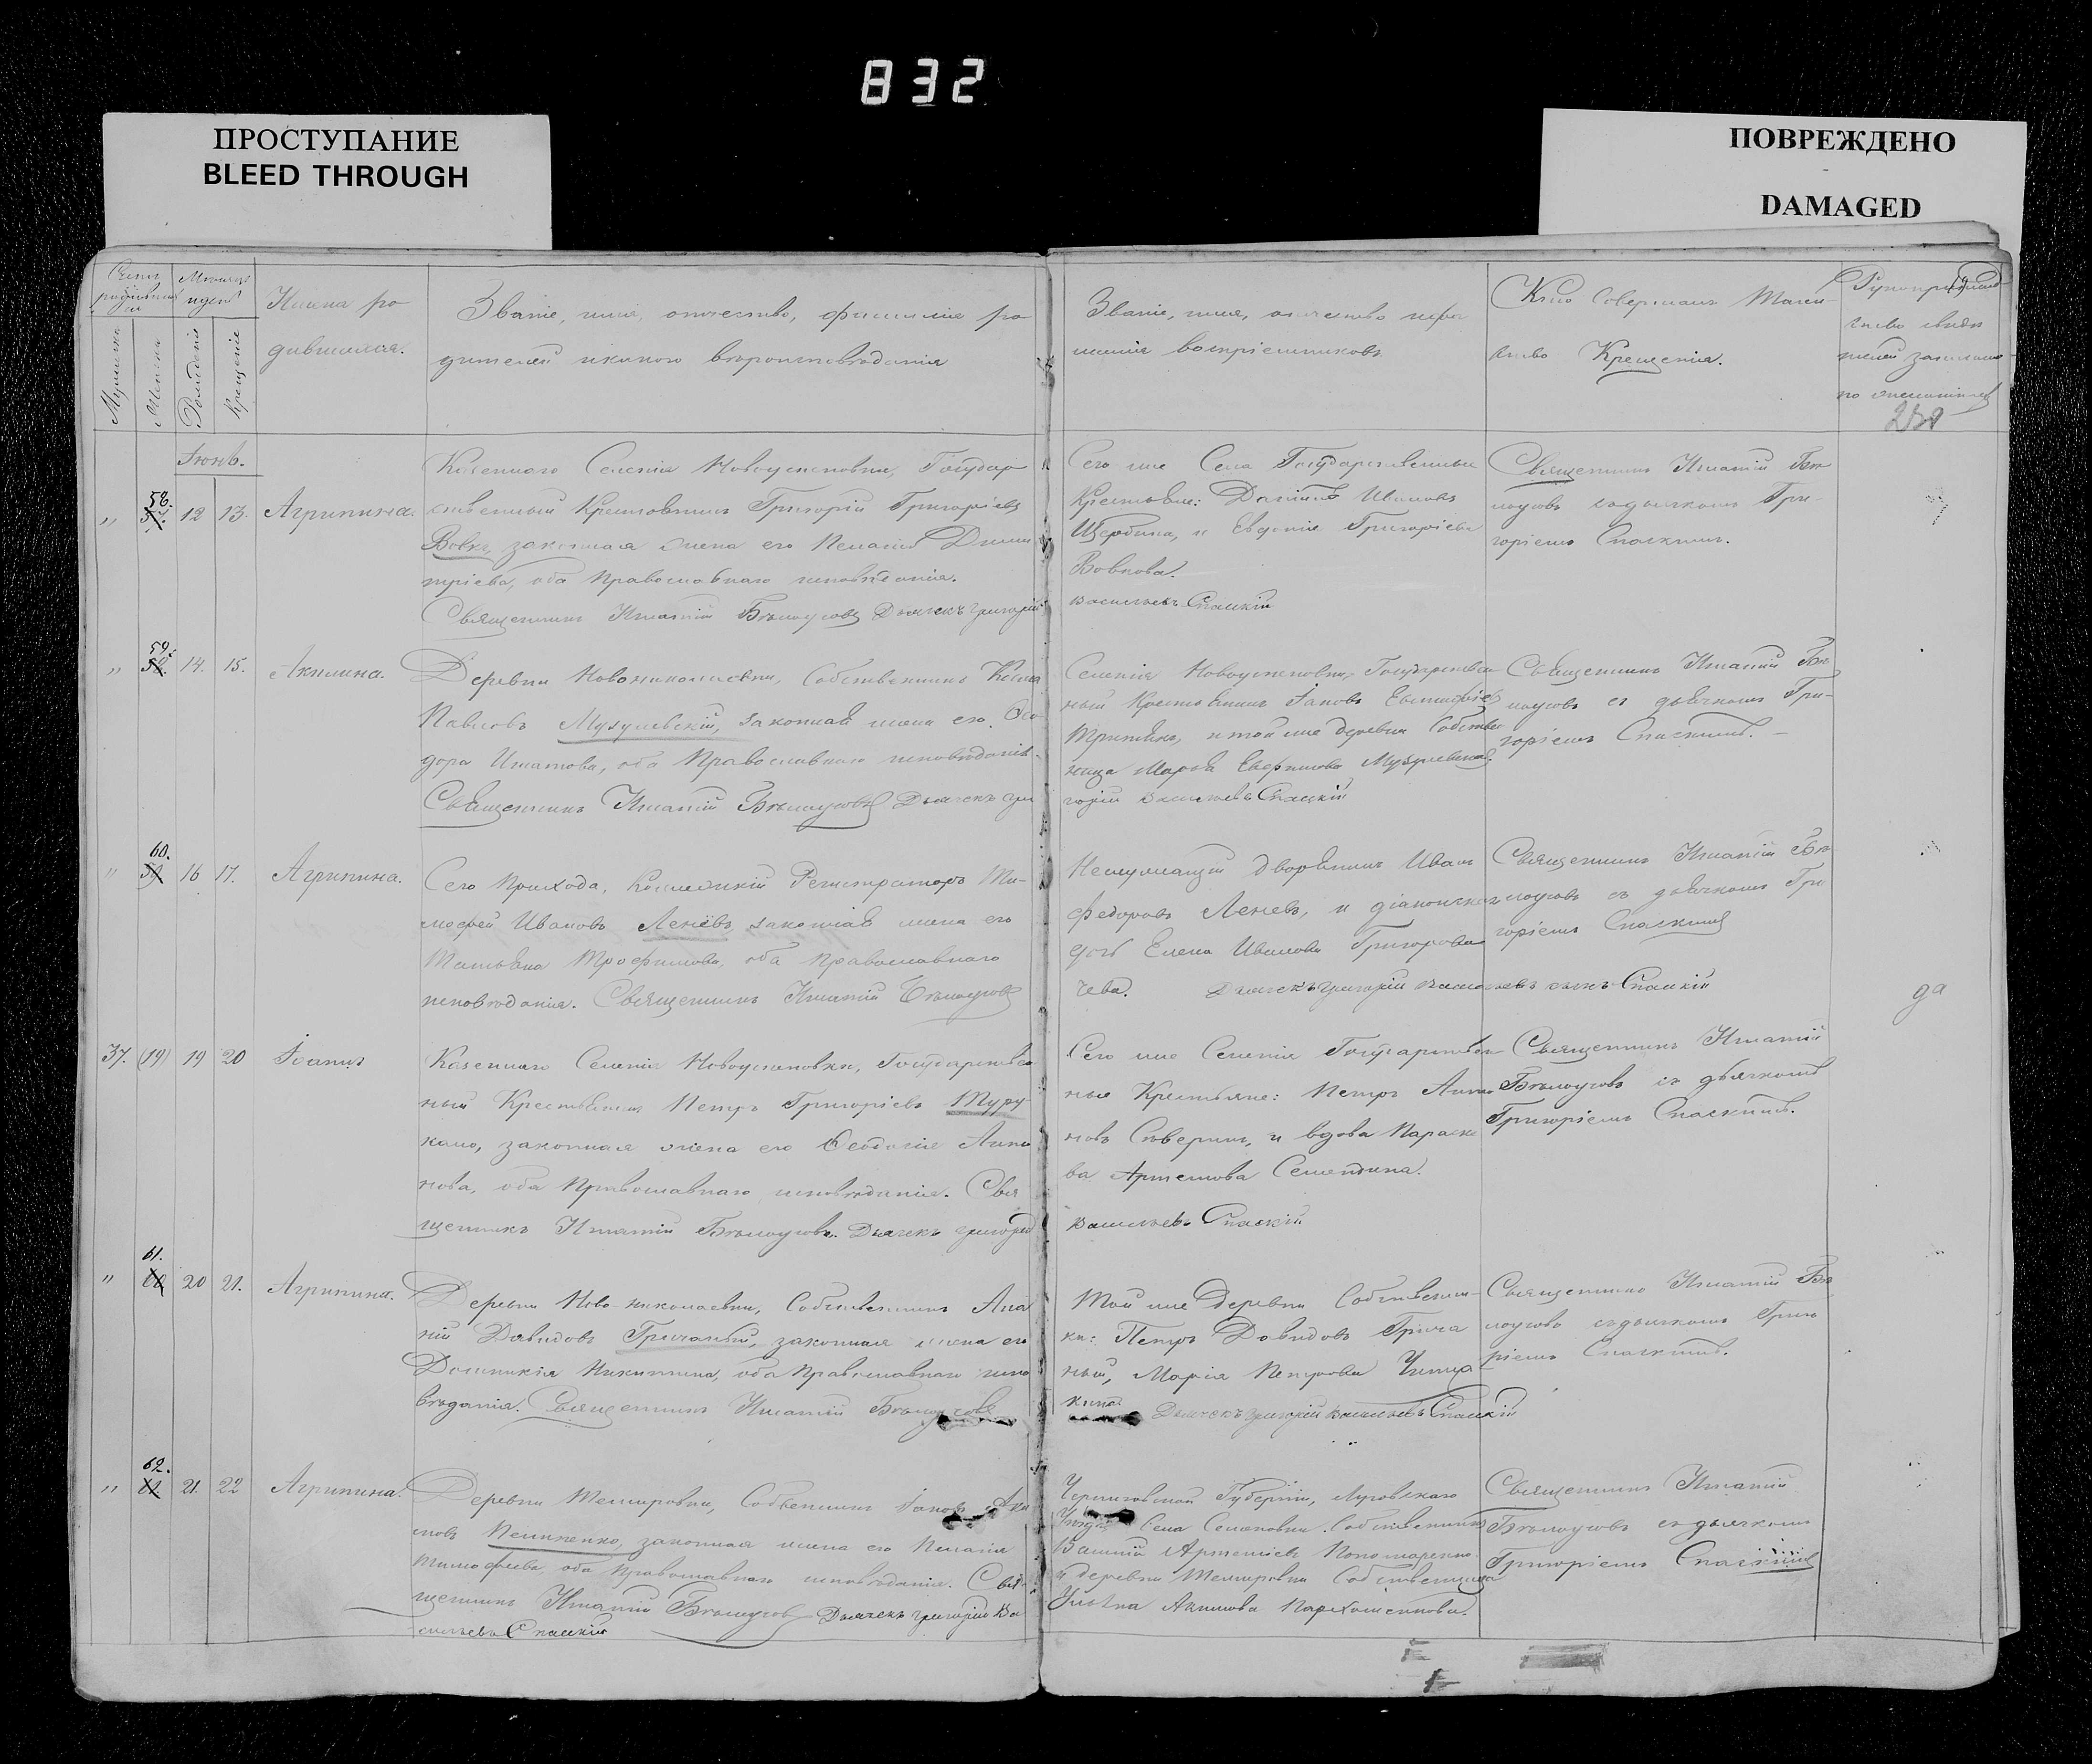 832
ПРОСТУПАНИЕ
BLEED THROUGH
ПОВРЕЖДЕНО
DAMAGED
Имена ро
дившихся.
Званіе, имя, отчество, фамилія ро
дителей и какого вѣроисповѣданія
Званіе, имя, отчество и фа
милія воспріемниковъ
Кто совершалъ Таин
ство Крещенія.
Рукоприклад
ство свидѣ
телей записи
по желанію
Мужеска
Женска
Рожденія
Крещенія
Іюнь.
" 58. 12 13. Агрипина.
Казеннаго Селенія Новоуспеновки, Государ
ственный Крестьянинъ Григорій Григорьевъ
Вовкъ, законная жена его Пелагія Дими
тріева, оба Православнаго исповѣданія.
Священникъ Игнатій Бѣлоусовъ Дьячекъ Григорій
Сего же Села Государственные
Крестьяне: Даніилъ Ивановъ
Щербина, и Евдокія Григорьева
Вовкова.
Васильевъ Спаскій
Священникъ Игнатій Бѣ
лоусовъ съ дьячкомъ Гри
горіемъ Спаскимъ.
" 59. 14. 15. Акилина.
Деревни Новониколаевки, Собственникъ Косма
Павловъ Музулевскій, законная жена его Ѳео
дора Игнатова, оба Православнаго исповѣданія.
Священникъ Игнатій Бѣлоусовъ Дьячекъ Гри
Селенія Новоуспеновки, Государствен
ный Крестьянинъ Іаковъ
и той же деревни Собствен
ница Марфа
горій Васильевъ Спаскій
Священникъ Игнатій Бѣ
лоусовъ съ дьячкомъ Гри
горіемъ Спаскимъ.
" 60. 16 17. Агрипина.
Сего Прихода, Коллежскій Регистраторъ Ти
моѳей Ивановъ Леневъ, законная жена его
Татьяна Трофимова, оба Православнаго
исповѣданія. Священникъ Игнатій Бѣлоусовъ
Неслужащій дворянинъ Иванъ
Федоровъ Леневъ, и діаконская
дочь Елена Иванова Григорови
чева. Дьячекъ Григорій Васильевъ сынъ Спаскій
Священникъ Игнатій Бѣ
лоусовъ съ дьячкомъ Гри
горіемъ Спаскимъ
да
37. (19) 19 20 Іоаннъ
Казеннаго Селенія Новоуспеновки, Государствен
ный Крестьянинъ Петръ Григорьевъ Туру
кало, законная жена его Ѳеодосія Анто
нова, оба Православнаго исповѣданія. Свя
щенникъ Игнатій Бѣлоусовъ. Дьячекъ Григорій
Сего же Селенія Государствен
ные Крестьяне: Петръ Анто
новъ Северинъ, и вдова Параске
ва Артемова Сементина.
Васильевъ Спаскій
Священникъ Игнатій
Бѣлоусовъ съ дьячкомъ
Григоріемъ Спаскимъ.
" 61. 20 21. Агрипина.
Деревни Ново-николаевки, Собственникъ Ана
ній Давидовъ Гричаный, законная жена его
Домникія Никитина, оба Православнаго испо
вѣданія. Священникъ Игнатій Бѣлоусовъ
Той же Деревни Собственни
ки: Петръ Давидовъ Грича
ный, Марія Петрова
кина. Дьячекъ Григорій Васильевъ Спаскій
Священникъ Игнатій Бѣ
лоусовъ съ дьячкомъ Григо
ріемъ Спаскимъ.
" 62. 21. 22 Агрипина.
Деревни Темировки, Собственникъ Іаковъ Аки
мовъ Пелипенко, законная жена его Пелагія
Тимофеева, оба Православнаго исповѣданія. Свя
щенникъ Игнатій Бѣлоусовъ Дьячекъ Григорій Ва
сильевъ Спаскій
Черниговской Губерніи,
Уѣзда Села Семеновки Собственникъ
Василій Артемьевъ Пономаренко
и деревни Темировки Собственница
Ульяна Акимова Пархоменкова.
Священникъ Игнатій
Бѣлоусовъ съ дьячкомъ
Григоріемъ Спаскимъ